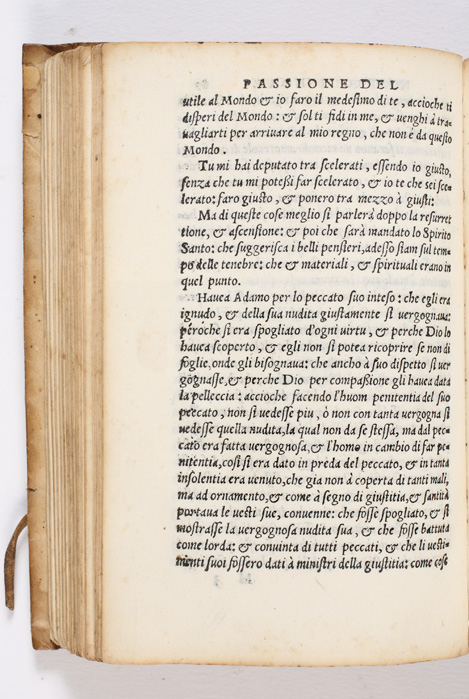 PASSIONE DEL
utile al Mondo & io faro il medesimo di te, accioche ti
disperi del Mondo: & sol ti fidi in me, & uenghi à tra-
uagliarti per arrivare al mio regno, che non è da questo
Mondo.
Tu mi hai deputato tra scelerati, essendo io giusto,
senza che tu mi potessi far scelerato, & io te che sei sce-
lerato: faro giusto, & ponero tra mezzo à giusti:
Ma di queste cose meglio si parlerà doppo la resurret
tione, & ascensione: & poi che sarà mandato lo Spirito
Santo: che suggerisca i belli pensieri, adesso siam sul tem-
po delle tenebre: che & materiali, & spirituali erano in
quel punto.
Haueа Adamo per lo peccato suo inteso: che egli era
ignudo, & della sua nudita giustamente si uergognaua:
peroche si era spogliato d'ogni uirtu, & perche Dio lo
hauea scoperto, & egli non si potea ricoprire se non di
foglie, onde gli bisognaua: che ancho à suo dispetto si uer
gognasse, & perche Dio per compassione gli hauea data
la pelleccia: accioche facendo l'huom penitentia del suo
peccato, non si uedesse piu, ò non con tanta uergogna si
uedesse quella nudita, la qual non da se stessa, ma dal pec-
cato era fatta uergognosa, & l'homo in cambio di far pe-
nitentia, così si era dato in preda del peccato, & in tanta
insolentia era uenuto, che gia non à coperta di tanti mali,
ma ad ornamento, & come à segno di giustitia, & santità
portaua le uesti sue, conuenne: che fosse spogliato, & si
mostrasse la uergognosa nudita sua, & che fosse battuta
come lorda: & conuinta di tutti peccati, & che li uesti-
menti suoi fossero dati à ministri della giustitia: come cose